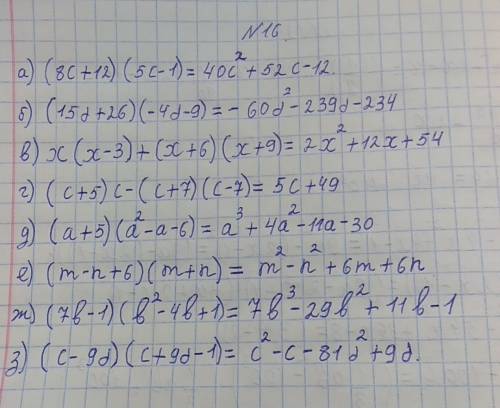 N16.
а) (8c+12)(5c-1)=40c²+52c-12.
б) (15d+26)(-4d-9)=-60d²-239d-234
в) x(x-3)+(x+6)(x+9)=2x²+12x+54
г) (c+5)c-(c+7)(c-7)=5c+49
д) (a+5)(a²-a-6)=a³+4a²-11a-30
е) (m-n+6)(m+n)=m²-n²+6m+6n
ж) (7b-1)(b²-4b+1)=7b³-29b²+11b-1
з) (c-9d)(c+9d-1)=c²-c-81d²+9d.